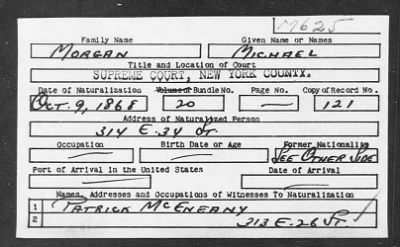 M625
Family Name Given Name or Names
MORGAN MICHAEL
Title and Location of Court
SUPREME COURT, NEW YORK COUNTY.
Date of Naturalization Volume or Bundle No. Page No. Copy of Record No.
OCT. 9, 1868 20 — 121
Address of Naturalized Person
314 E. 34 ST.
Occupation Birth Date or Age Former Nationality
— — SEE OTHER SIDE
Port of Arrival in the United States Date of Arrival
— —
Names, Addresses and Occupations of Witnesses To Naturalization
1 PATRICK MCENEANY
2 213 E. 26 ST.